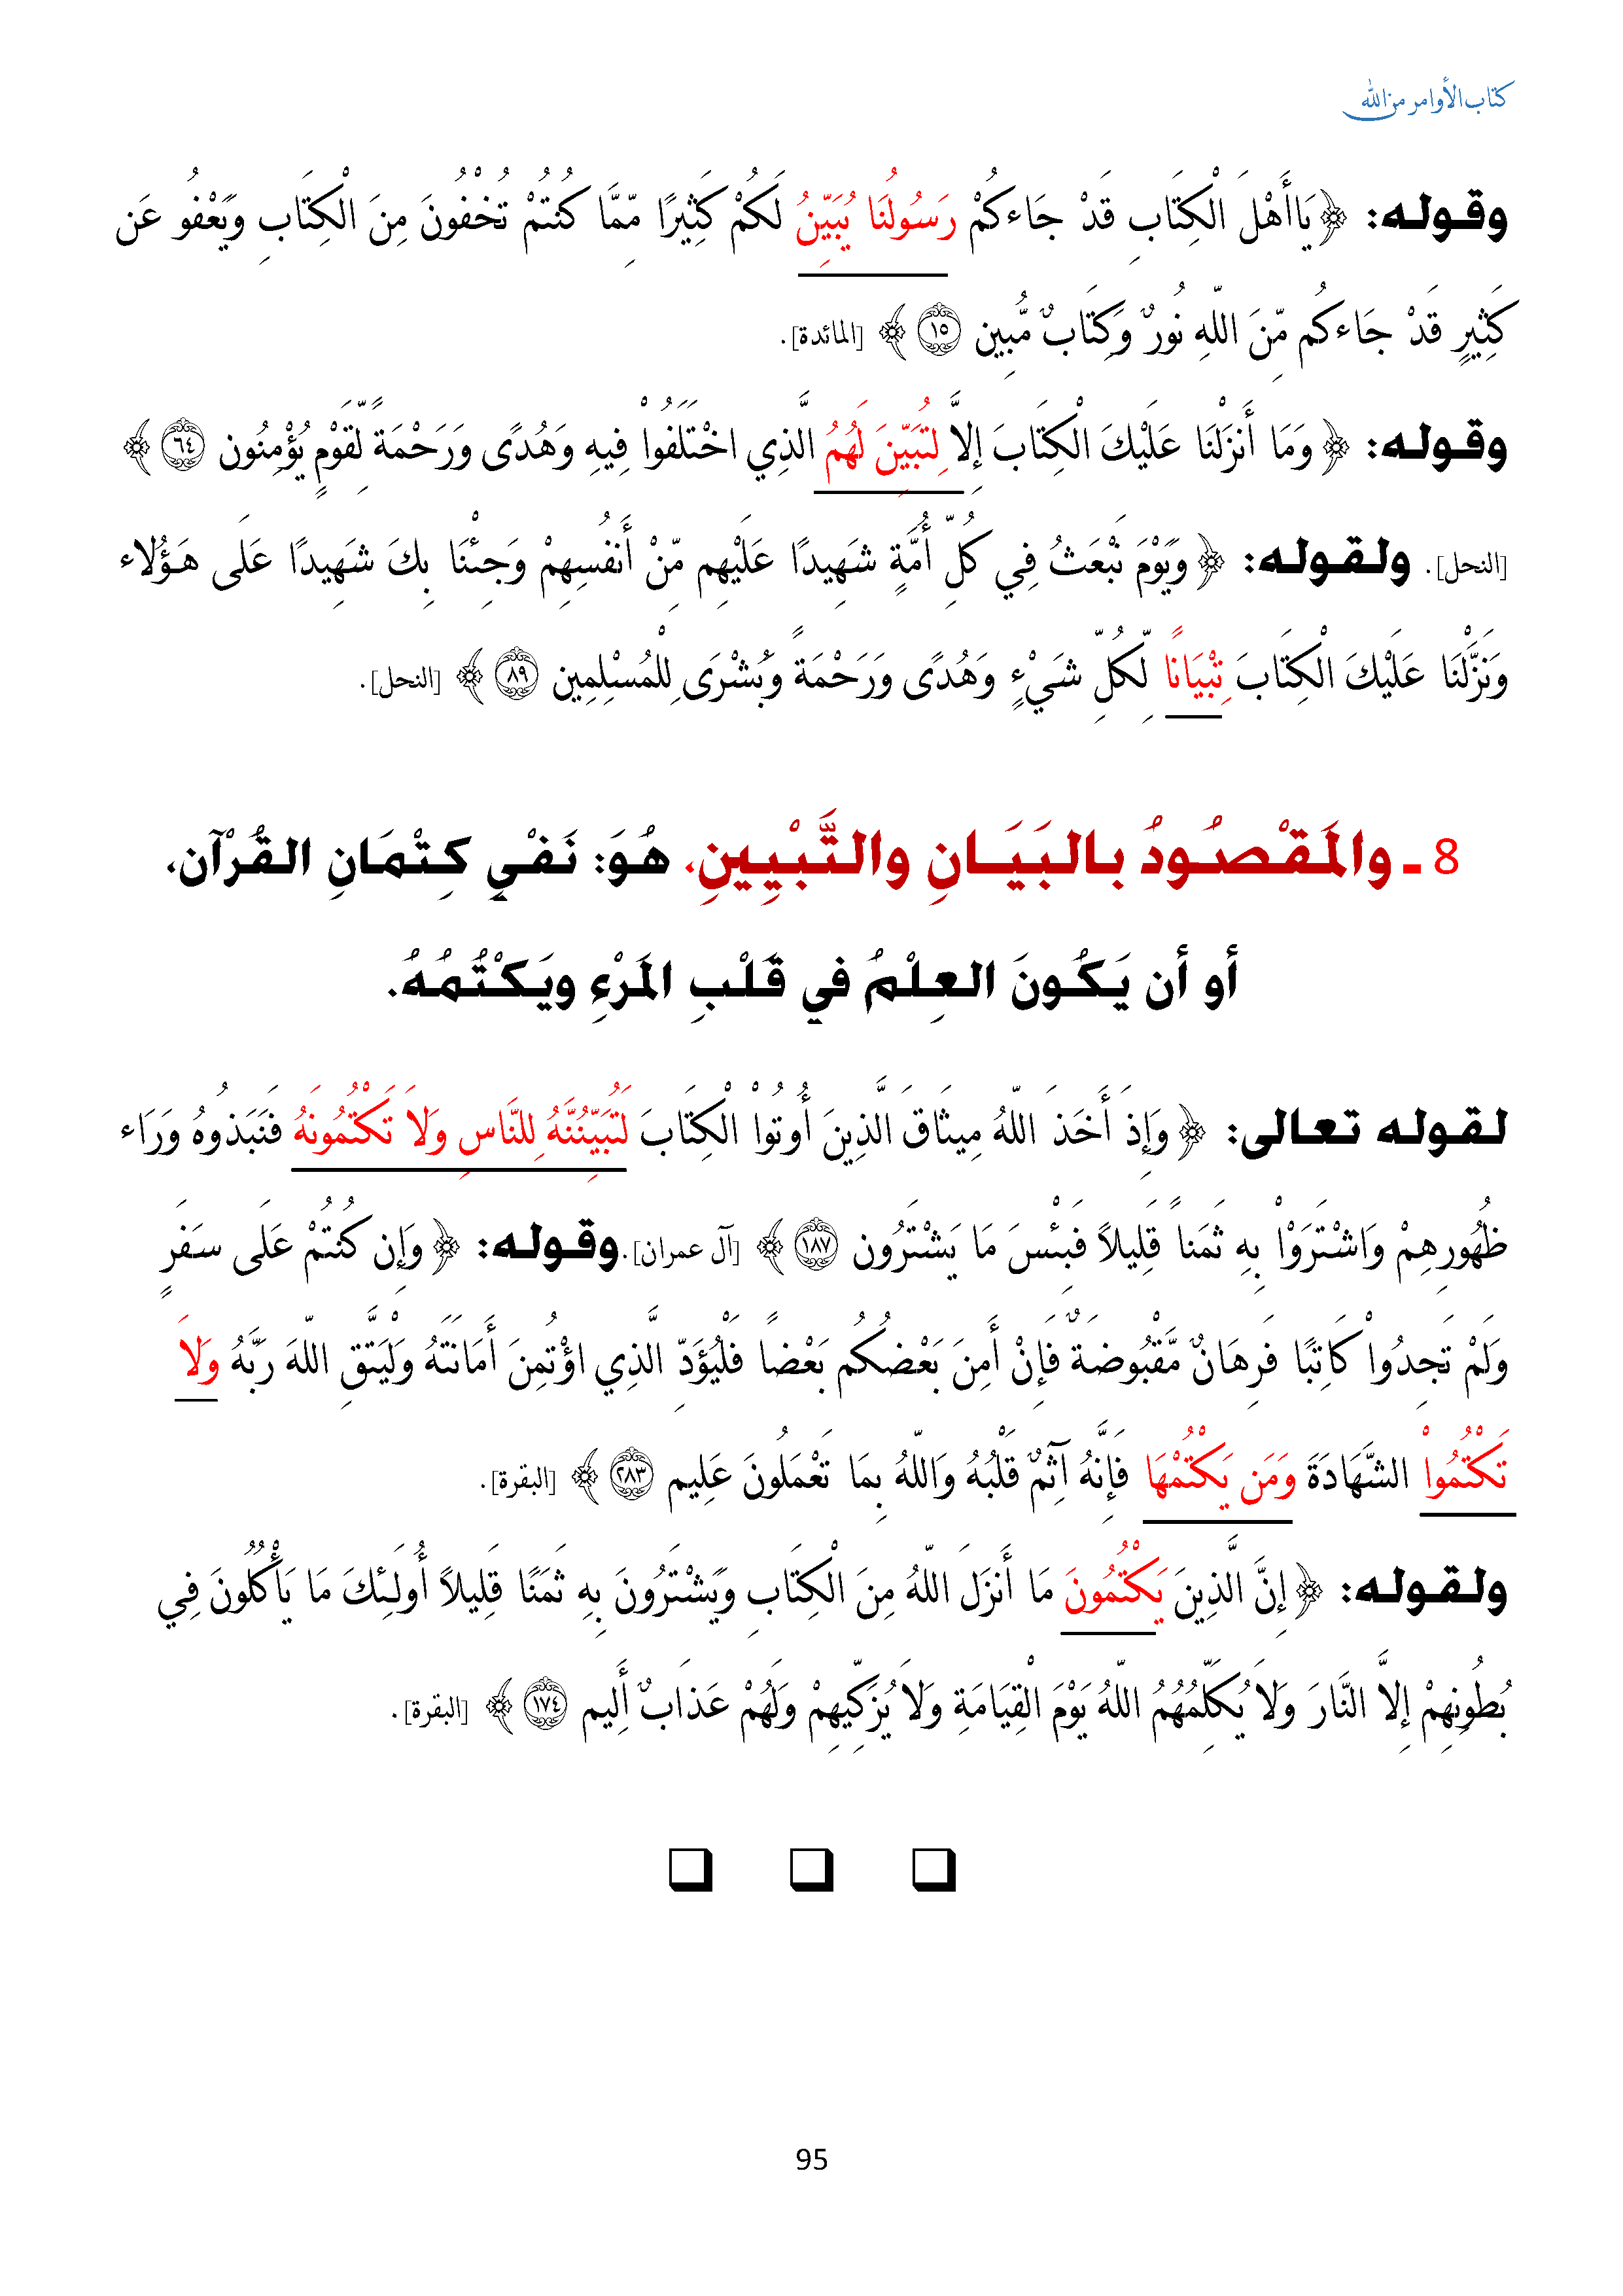 كتاب الأوامر من الله
وقوله: ﴿ يَاأَهْلَ الْكِتَابِ قَدْ جَاءكُمْ رَسُولُنَا يُبَيِّنُ لَكُمْ كَثِيرًا مِّمَّا كُنتُمْ تُخْفُونَ مِنَ الْكِتَابِ وَيَعْفُو عَن
كَثِيرٍ قَدْ جَاءكُم مِّنَ اللّهِ نُورٌ وَكِتَابٌ مُّبِين ١٥ ﴾ [المائدة].
وقوله: ﴿ وَمَا أَنزَلْنَا عَلَيْكَ الْكِتَابَ إِلاَّ لِتُبَيِّنَ لَهُمُ الَّذِي اخْتَلَفُواْ فِيهِ وَهُدًى وَرَحْمَةً لِّقَوْمٍ يُؤْمِنُون ٦٤ ﴾
[النحل]. ولقوله: ﴿ وَيَوْمَ نَبْعَثُ فِي كُلِّ أُمَّةٍ شَهِيدًا عَلَيْهِم مِّنْ أَنفُسِهِمْ وَجِئْنَا بِكَ شَهِيدًا عَلَى هَـؤُلاء
وَنَزَّلْنَا عَلَيْكَ الْكِتَابَ تِبْيَانًا لِّكُلِّ شَيْءٍ وَهُدًى وَرَحْمَةً وَبُشْرَى لِلْمُسْلِمِين ٨٩ ﴾ [النحل].
8 ـ والمَقْصُودُ بالبَيَانِ والتَّبْيِينِ، هُوَ: نَفْي كِتْمَانِ القُرْآن،
أو أن يَكُونَ العِلْمُ في قَلْبِ المَرْءِ ويَكْتُمُهُ.
لقوله تعالى: ﴿ وَإِذَ أَخَذَ اللّهُ مِيثَاقَ الَّذِينَ أُوتُواْ الْكِتَابَ لَتُبَيِّنُنَّهُ لِلنَّاسِ وَلاَ تَكْتُمُونَهُ فَنَبَذُوهُ وَرَاء
ظُهُورِهِمْ وَاشْتَرَوْاْ بِهِ ثَمَناً قَلِيلاً فَبِئْسَ مَا يَشْتَرُون ١٨٧ ﴾ [آل عمران]. وقوله: ﴿ وَإِن كُنتُمْ عَلَى سَفَرٍ
وَلَمْ تَجِدُواْ كَاتِبًا فَرِهَانٌ مَّقْبُوضَةٌ فَإِنْ أَمِنَ بَعْضُكُم بَعْضاً فَلْيُؤَدِّ الَّذِي اؤْتُمِنَ أَمَانَتَهُ وَلْيَتَّقِ اللّهَ رَبَّهُ وَلاَ
تَكْتُمُواْ الشَّهَادَةَ وَمَن يَكْتُمْهَا فَإِنَّهُ آثِمٌ قَلْبُهُ وَاللّهُ بِمَا تَعْمَلُونَ عَلِيم ٢٨٣ ﴾ [البقرة].
ولقوله: ﴿ إِنَّ الَّذِينَ يَكْتُمُونَ مَا أَنزَلَ اللّهُ مِنَ الْكِتَابِ وَيَشْتَرُونَ بِهِ ثَمَنًا قَلِيلاً أُولَـئِكَ مَا يَأْكُلُونَ فِي
بُطُونِهِمْ إِلاَّ النَّارَ وَلاَ يُكَلِّمُهُمُ اللّهُ يَوْمَ الْقِيَامَةِ وَلاَ يُزَكِّيهِمْ وَلَهُمْ عَذَابٌ أَلِيم ١٧٤ ﴾ [البقرة].
95